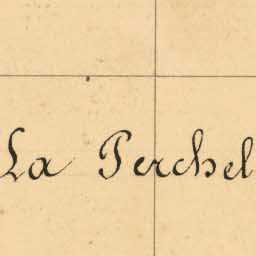 La Perchel